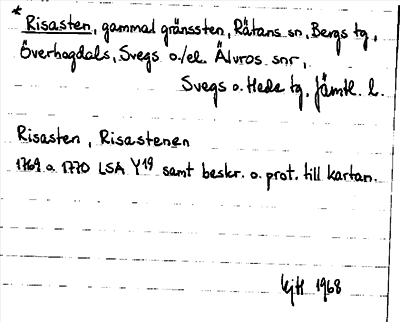 * Risasten, gammal gränssten, Rätans sn, Bergs tg,
Överhogdals, Svegs o./el. Älvros snr,
Svegs o. Hede tg, Jämtl. l.
Risasten, Risastenen
1769 o. 1770 LSA Y19 samt beskr. o. prot. till kartan.
1968